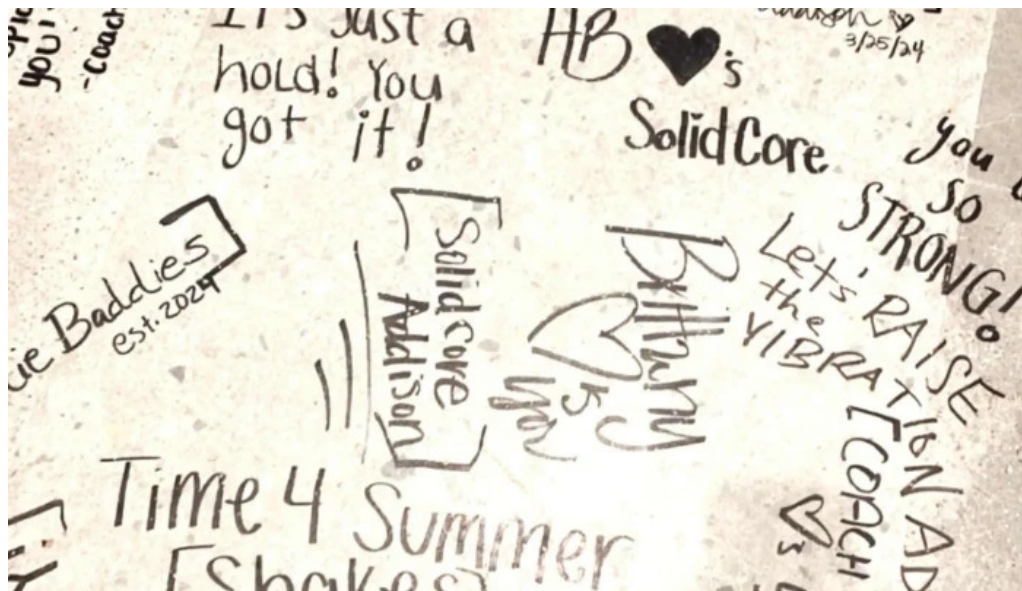 you!
-coach
It's just a
hold! You
got it!
HB ♥'s
SolidCore
3/25/24
you
so
STRONG!
Baddies
est. 2024
[Solidcore
Addison]
Brittany
♡'s
you
Let's RAISE
the
VIBRATION
[COACH
♡'s
Time 4 Summer
[Shakes]